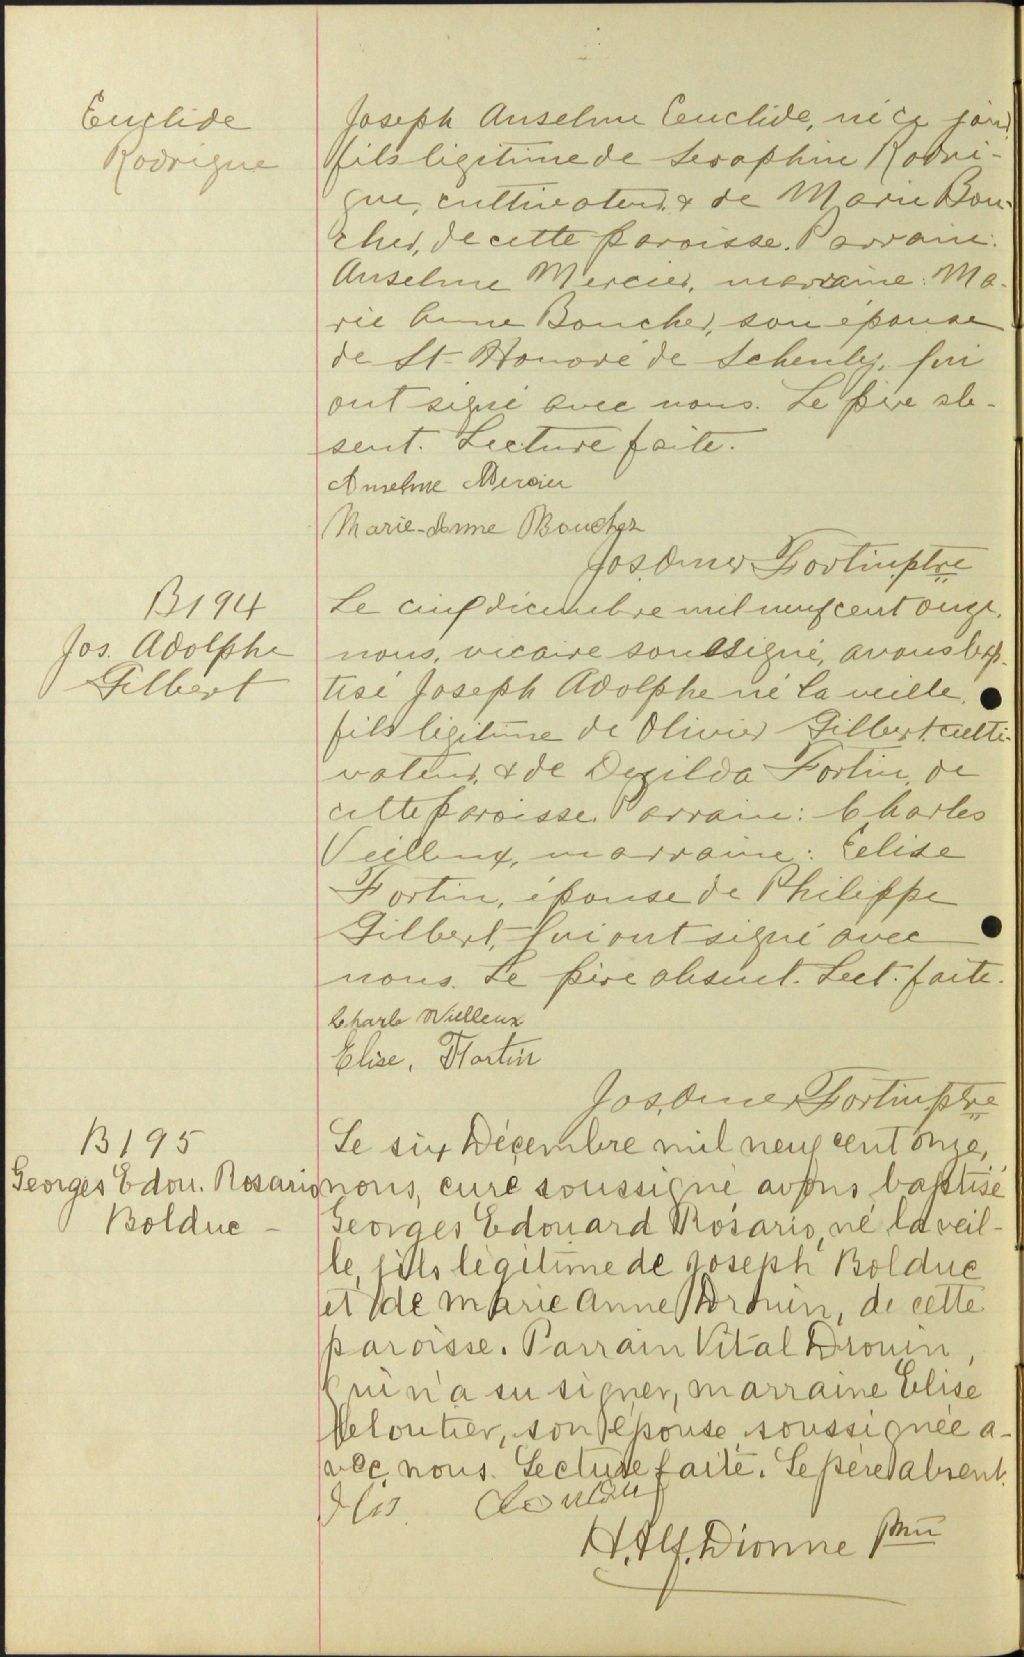 Euclide
Rodrigue
Joseph Anselme Euclide, né ce jour,
fils légitime de Seraphin Rodri-
gue, cultivateur, & de Marie Bou-
cher, de cette paroisse. Parrain:
Anselme Mercier, marraine: Ma-
rie Anne Boucher, son épouse
de St-Honoré de Schenley, qui
ont signé avec nous. Le père ab-
sent. Lecture faite.
Anselme Mercier
Marie-Anne Boucher
Jos. Omer Fortin, ptre
B194
Jos. Adolphe
Gilbert
Le cinq décembre mil neuf cent onze,
nous, vicaire soussigné, avons bap-
tisé Joseph Adolphe né la veille,
fils légitime de Olivier Gilbert, culti-
vateur, & de Dezilda Fortin, de
cette paroisse. Parrain: Charles
Veilleux, marraine: Elise
Fortin, épouse de Philippe
Gilbert, qui ont signé avec
nous. Le père absent. Lect. faite.
Charle Veilleux
Elise. Fortin
Jos. Omer Fortin, ptre
B195
Georges Edou. Rosario
Bolduc -
Le six Décembre mil neuf cent onze,
nous, curé soussigné avons baptisé
Georges Edouard Rosario, né la veil-
le, fils légitime de Joseph Bolduc
et de Marie Anne Drouin, de cette
paroisse. Parrain Vital Drouin,
qui n'a su signer, marraine Elise
son épouse, soussignée a-
vec nous. Lecture faite. Le père absent.
H. Alf. Dionne Ptre